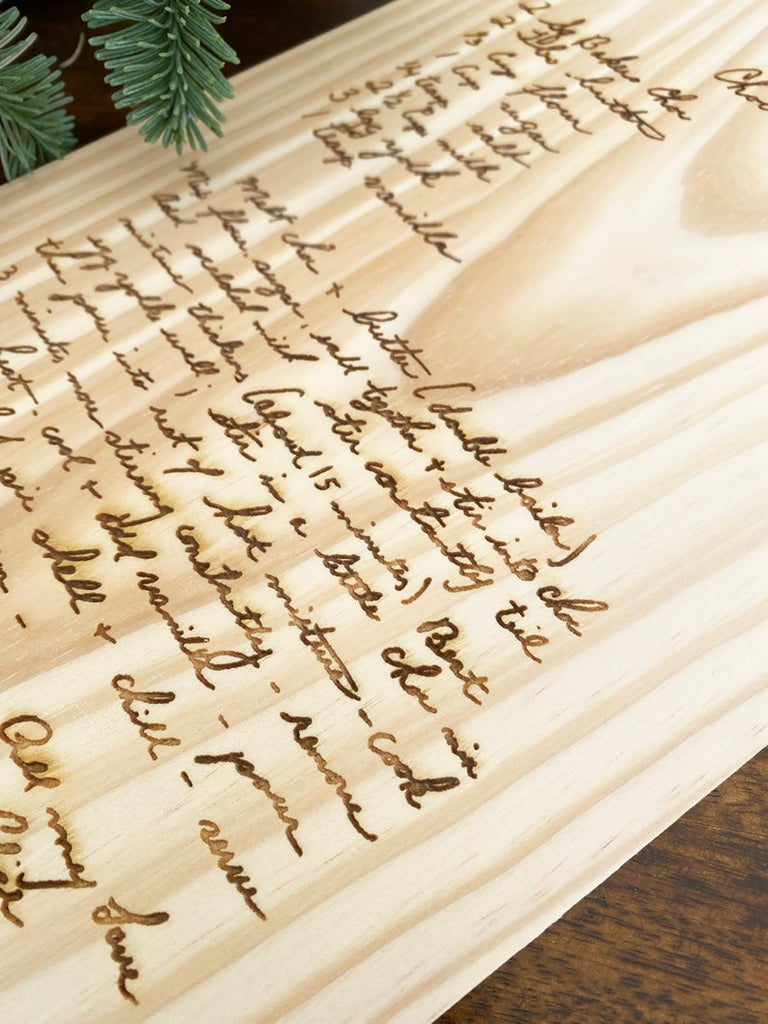 Cho
2 sq Baker cho
2 Tbs butter
1/3 cup flour
1 cup sugar
1/4 teas salt
2 1/2 cup milk
3 egg yolk
1 teas vanilla
Melt cho + butter (double boiler)
Mix flour, sugar, salt together + stir into cho
Add scalded milk stir constantly til
mixture thickens (about 15 minutes) Beat
egg yolks well; stir in a little cho mix.
then pour into rest of hot mixture - cook
3 minutes more stirring constantly - remove
cool + add vanilla - pour
pie shell + chill - serve
All my love